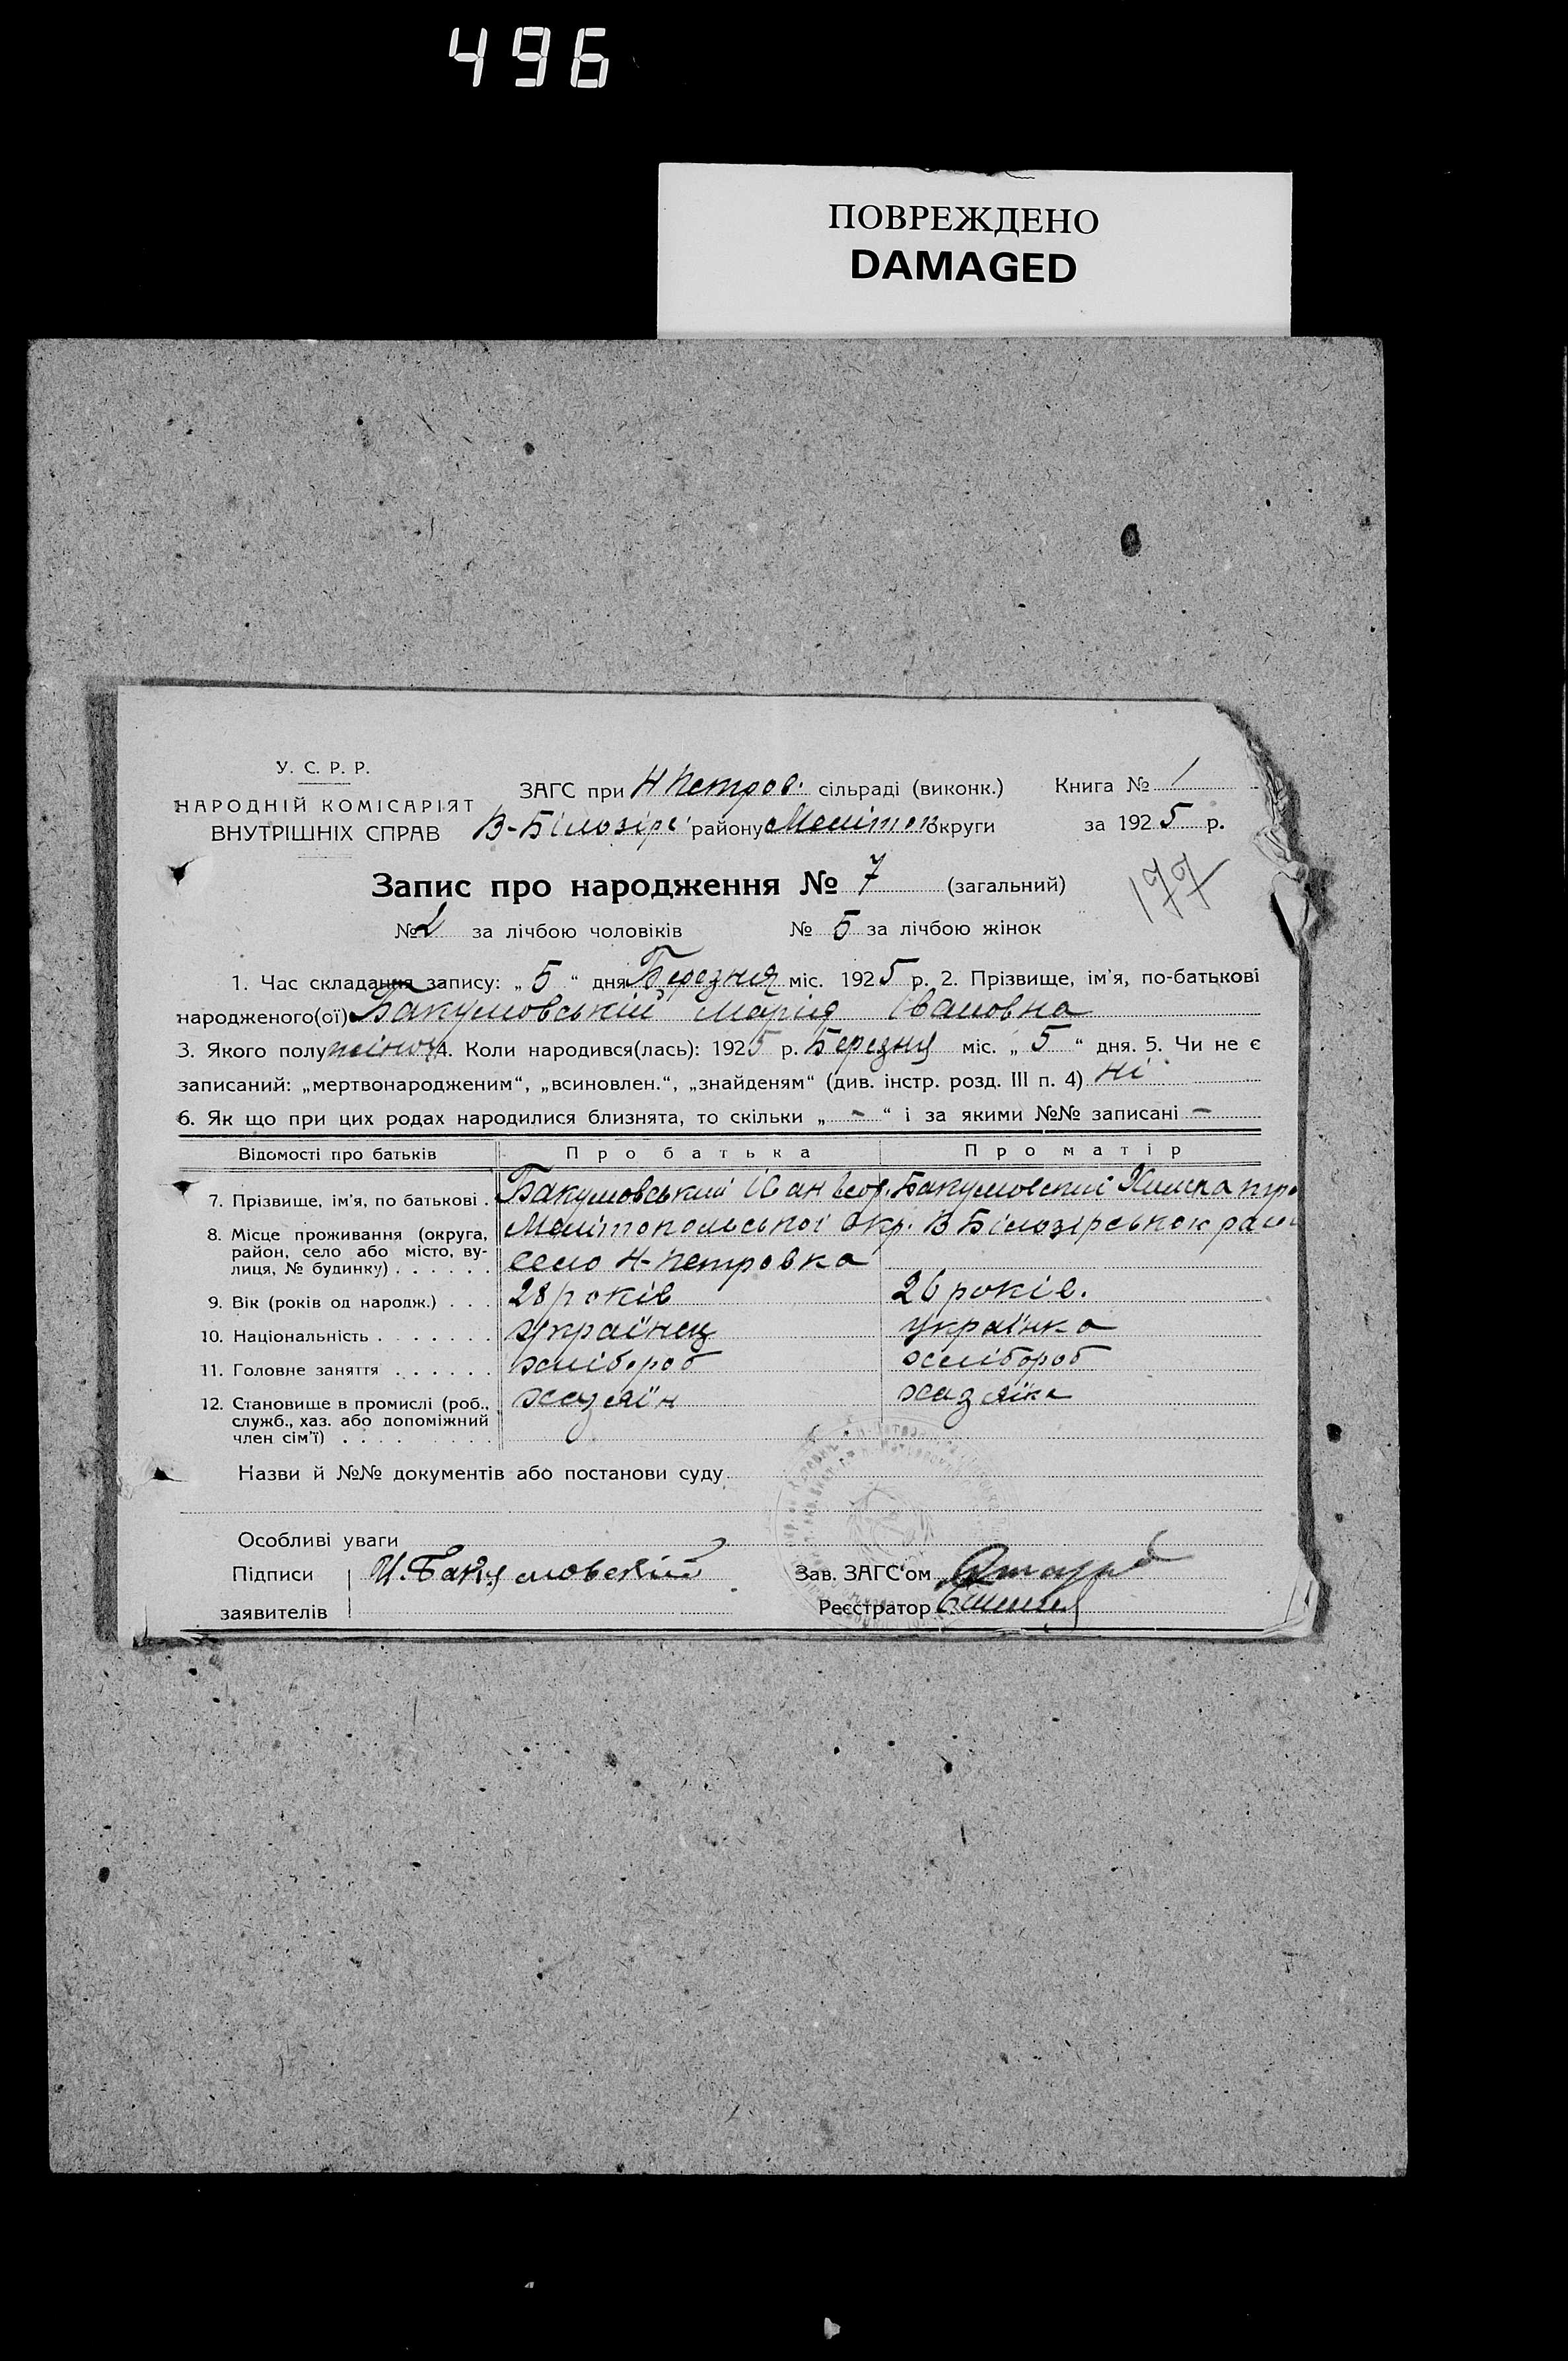 496
ПОВРЕЖДЕНО
DAMAGED
У. С. Р. Р.
НАРОДНІЙ КОМІСАРІЯТ
ВНУТРІШНІХ СПРАВ
ЗАГС при Н Петров. сільраді (виконк.) Книга № 1
В-Білозірс району Мелітоп округи за 1925 р.
177
Запис про народження № 7 (загальний)
№ 2 за лічбою чоловіків № 5 за лічбою жінок
1. Час складання запису: „ 5 “ дня Березня міс. 1925 р. 2. Прізвище, ім'я, по-батькові
народженого(ої) Бакумовській Марія Івановна
3. Якого полу жіночу 4. Коли народився(лась): 1925 р. Березня міс. „ 5 “ дня. 5. Чи не є
записаний: „мертвонародженим“, „всиновлен.“, „знайденям“ (див. інстр. розд. III п. 4) ні
6. Як що при цих родах народилися близнята, то скільки „ - “ і за якими №№ записані -
Відомості про батьків Про батька Про матір
7. Прізвище, ім'я, по батькові . Бакумовський Іван Бакумовский
8. Місце проживання (округа, Мелітопольської Окр. В Білозірської
район, село або місто, ву-
лиця, № будинку) . . . . . . село Н-Петровка
9. Вік (років од народж.) . . . 28 років 26 років.
10. Національність . . . . . . . українец українка
11. Головне заняття . . . . . . хлібороб хлібороб
12. Становище в промислі (роб., хазяїн хазяїка
служб., хаз. або допоміжний
член сім'ї) . . . . . . . . .
Назви й №№ документів або постанови суду
Особливі уваги
Підписи И. Бакумовский Зав. ЗАГС'ом
заявителів Реєстратор